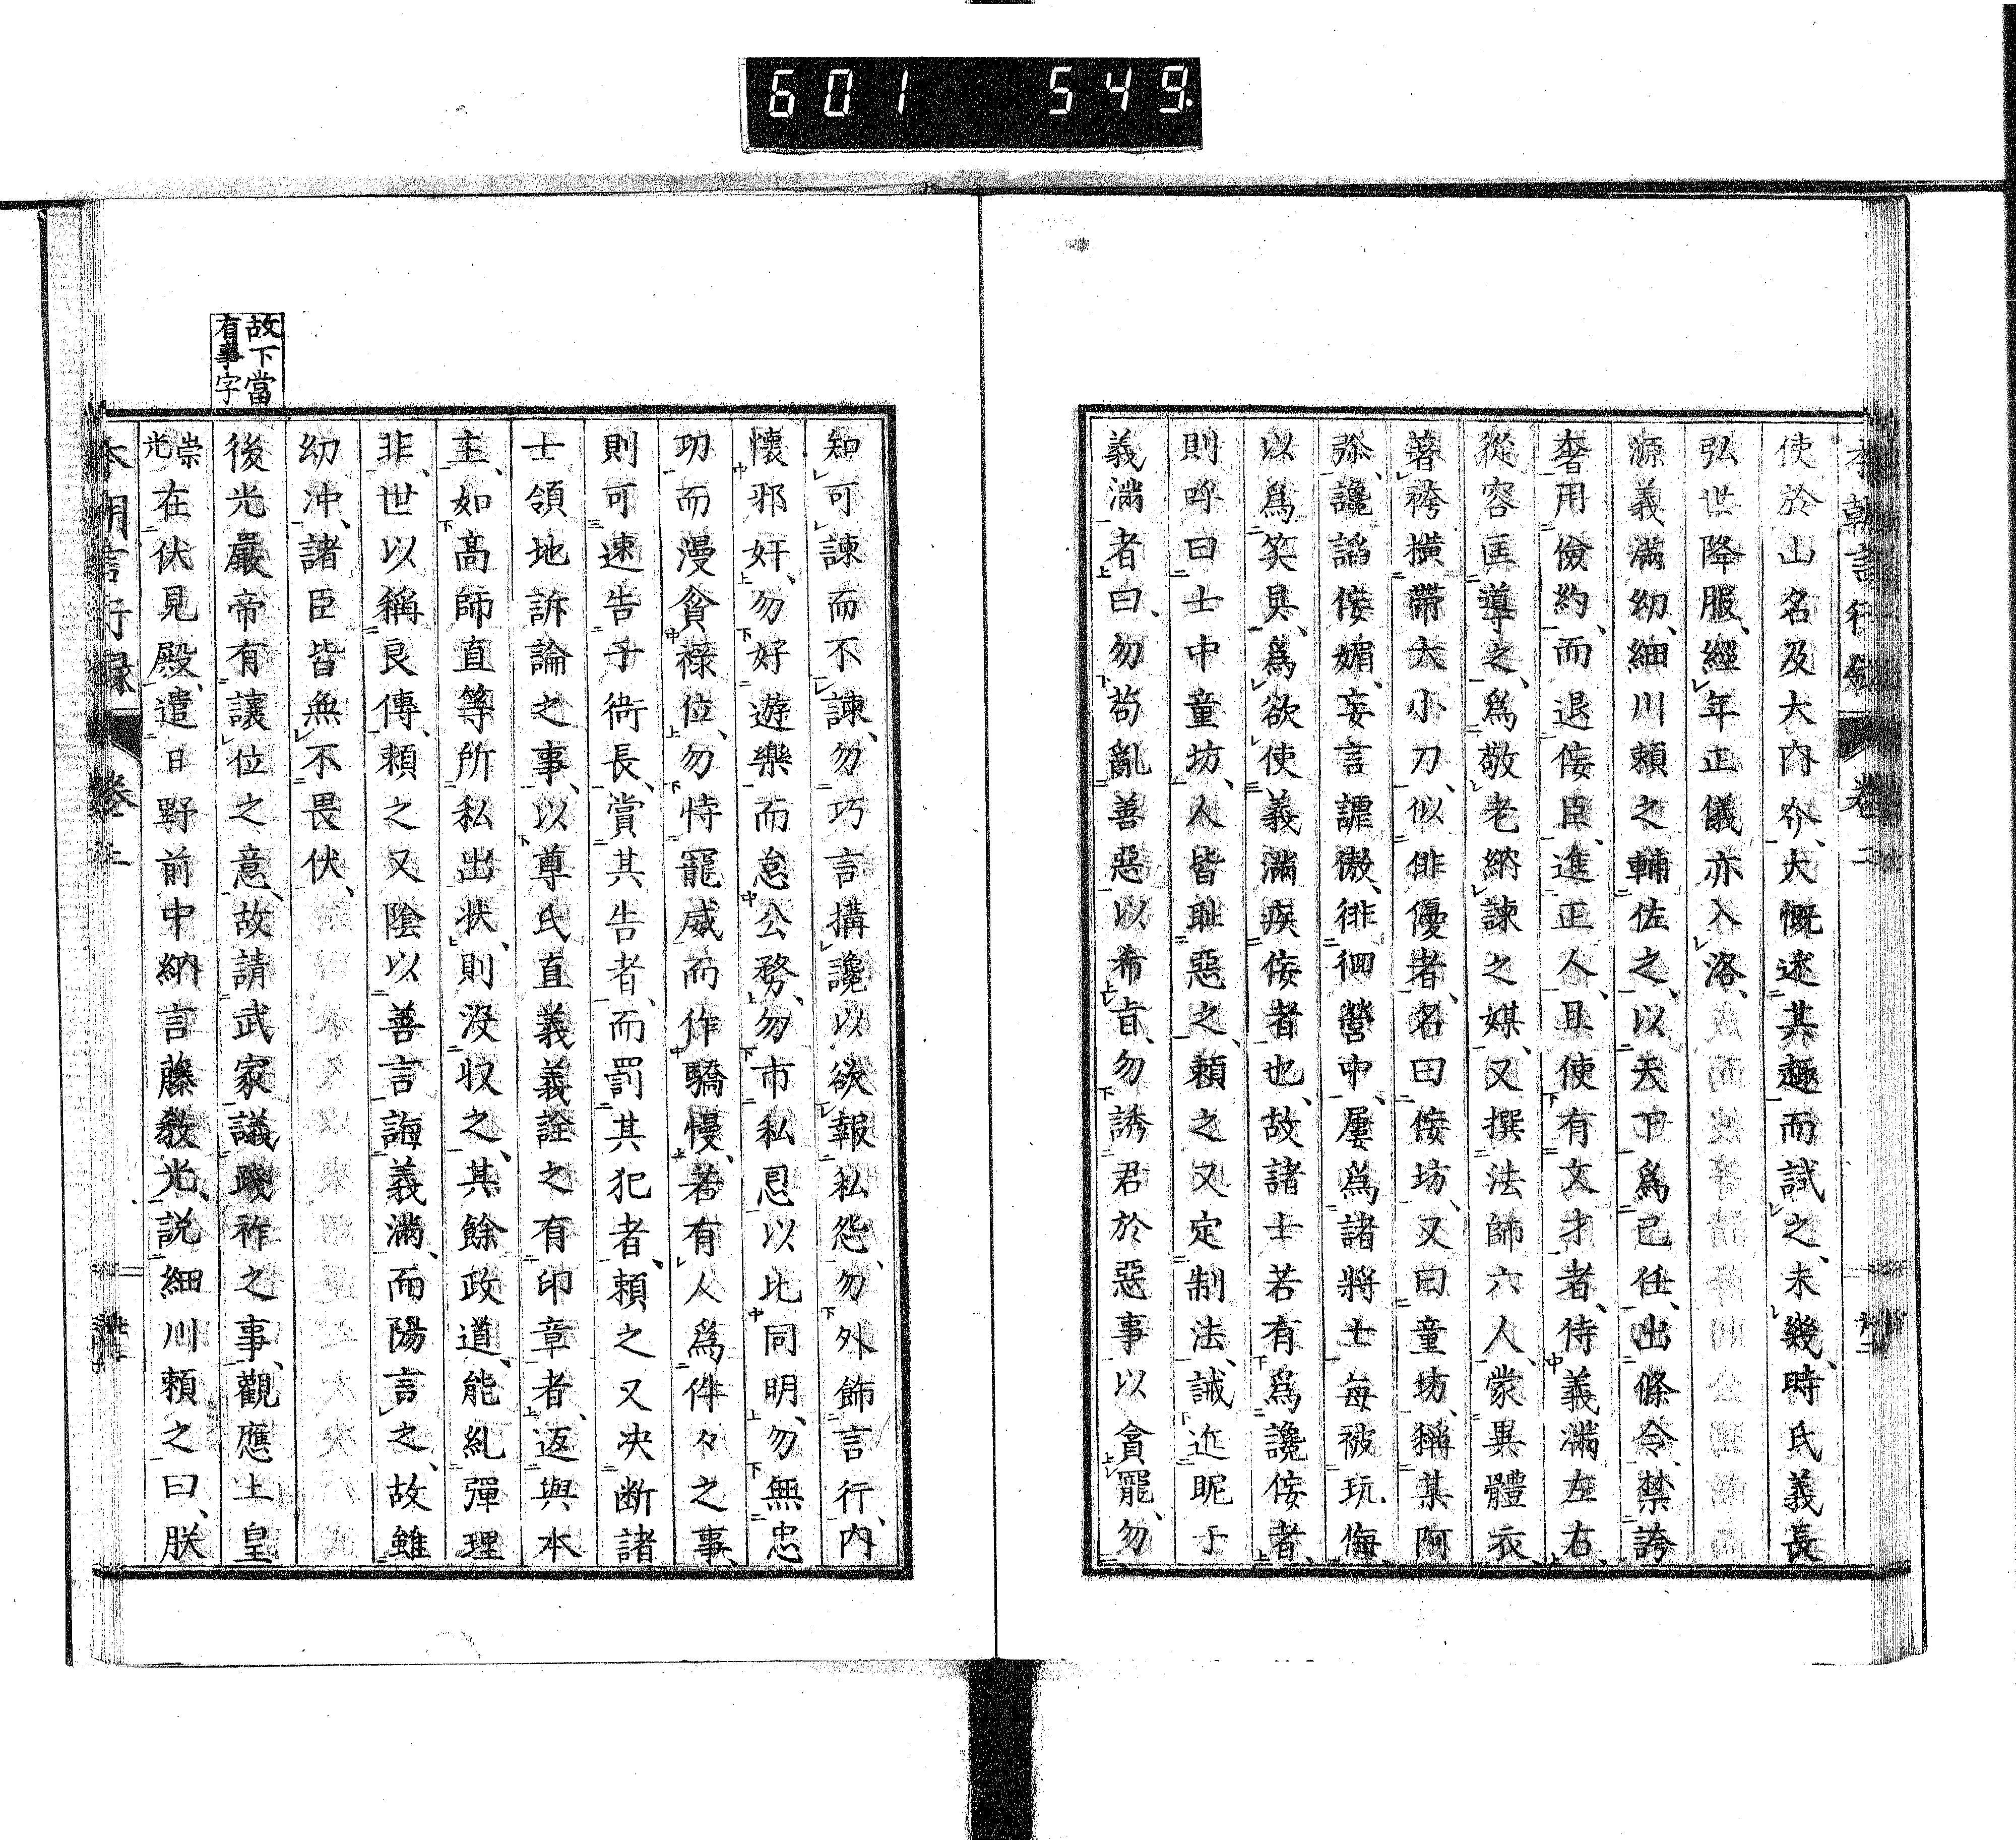 601 549
本朝言行録 卷二
使於山名及大内介、大慨述其趣而試之、未幾時氏義長
弘世降服、經年正儀亦入洛、
源義滿幼、細川頼之輔佐之、以天下爲己任、出條令、禁誇
奢用儉約、而退佞臣、進正人、且使有文才者、侍義滿左右、
從容匡導之、爲敬老納諫之媒、又撰法師六人、蒙異體衣、
著袴橫帶大小刀、似俳優者、名曰佞坊、又曰童坊、稱某阿
弥、讒謟佞媚、妄言謔傲、徘徊營中、屢爲諸將士每被玩侮
以爲笑具、爲欲使義滿疾佞者也、故諸士若有爲讒佞者、
則呼曰士中童坊、人皆耻惡之、頼之又定制法、誡近昵于
義滿者曰、勿苟亂善惡以希旨、勿誘君於惡事以貪寵、勿
知可諫而不諫、勿巧言搆讒以欲報私怨、勿外飾言行、内
懷邪奸、勿好遊樂而怠公務、勿市私恩以比同明、勿無忠
功而漫貧禄位、勿恃寵威而作驕慢、若有人爲件々之事、
則可速告于衙長、賞其告者、而罰其犯者、頼之又决断諸
士領地訴論之事、以尊氏直義義詮之有印章者、返與本
主、如高師直等所私出状、則沒収之、其餘政道、能糺彈理
非、世以稱良傳、頼之又陰以善言誨義滿、而陽言之、故雖
幼冲、諸臣皆無不畏伏、
故下當
有事字
後光嚴帝有讓位之意、故請武家議踐祚之事、觀應上皇
崇
光
在伏見殿、遣日野前中納言藤敎光、説細川頼之曰、朕
本朝言行録 卷二